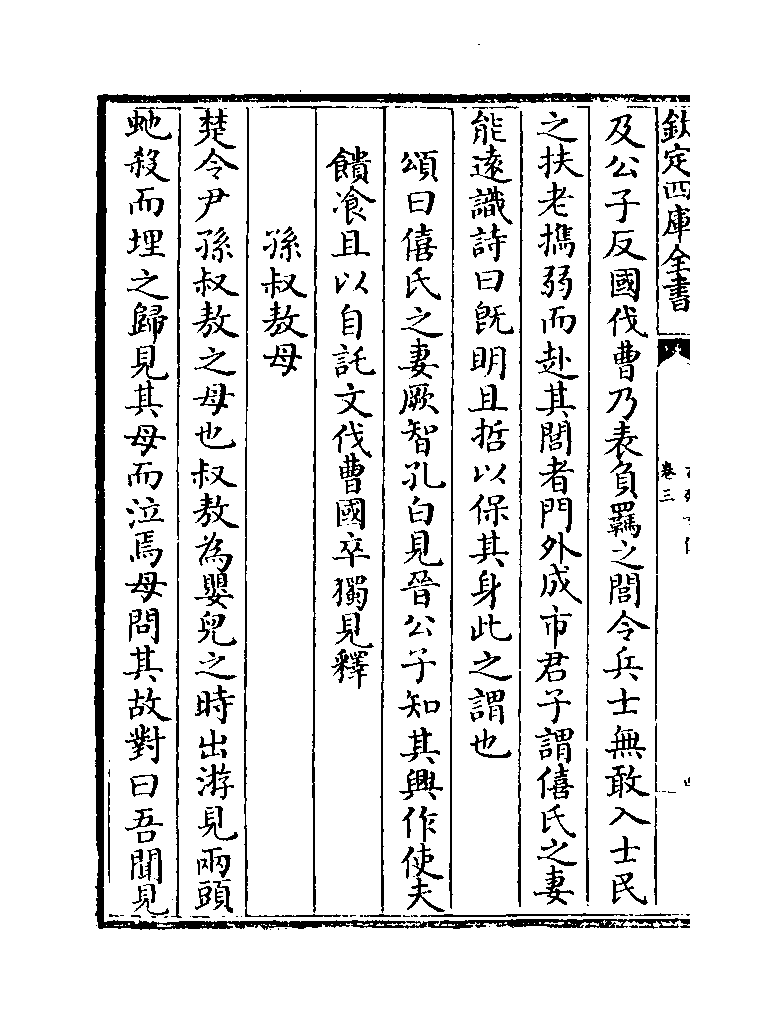 欽定四庫全書
卷三
及公子反國伐曹乃表負羈之閭令兵士無敢入士民
之扶老攜弱而赴其閭者門外成市君子謂僖氏之妻
能遠識詩曰旣明且哲以保其身此之謂也
頌曰僖氏之妻厥智孔白見晉公子知其興作使夫
饋飡且以自託文伐曹國卒獨見釋
孫叔敖母
楚令尹孫叔敖之母也叔敖為嬰兒之時出游見兩頭
虵殺而埋之歸見其母而泣焉母問其故對曰吾聞見